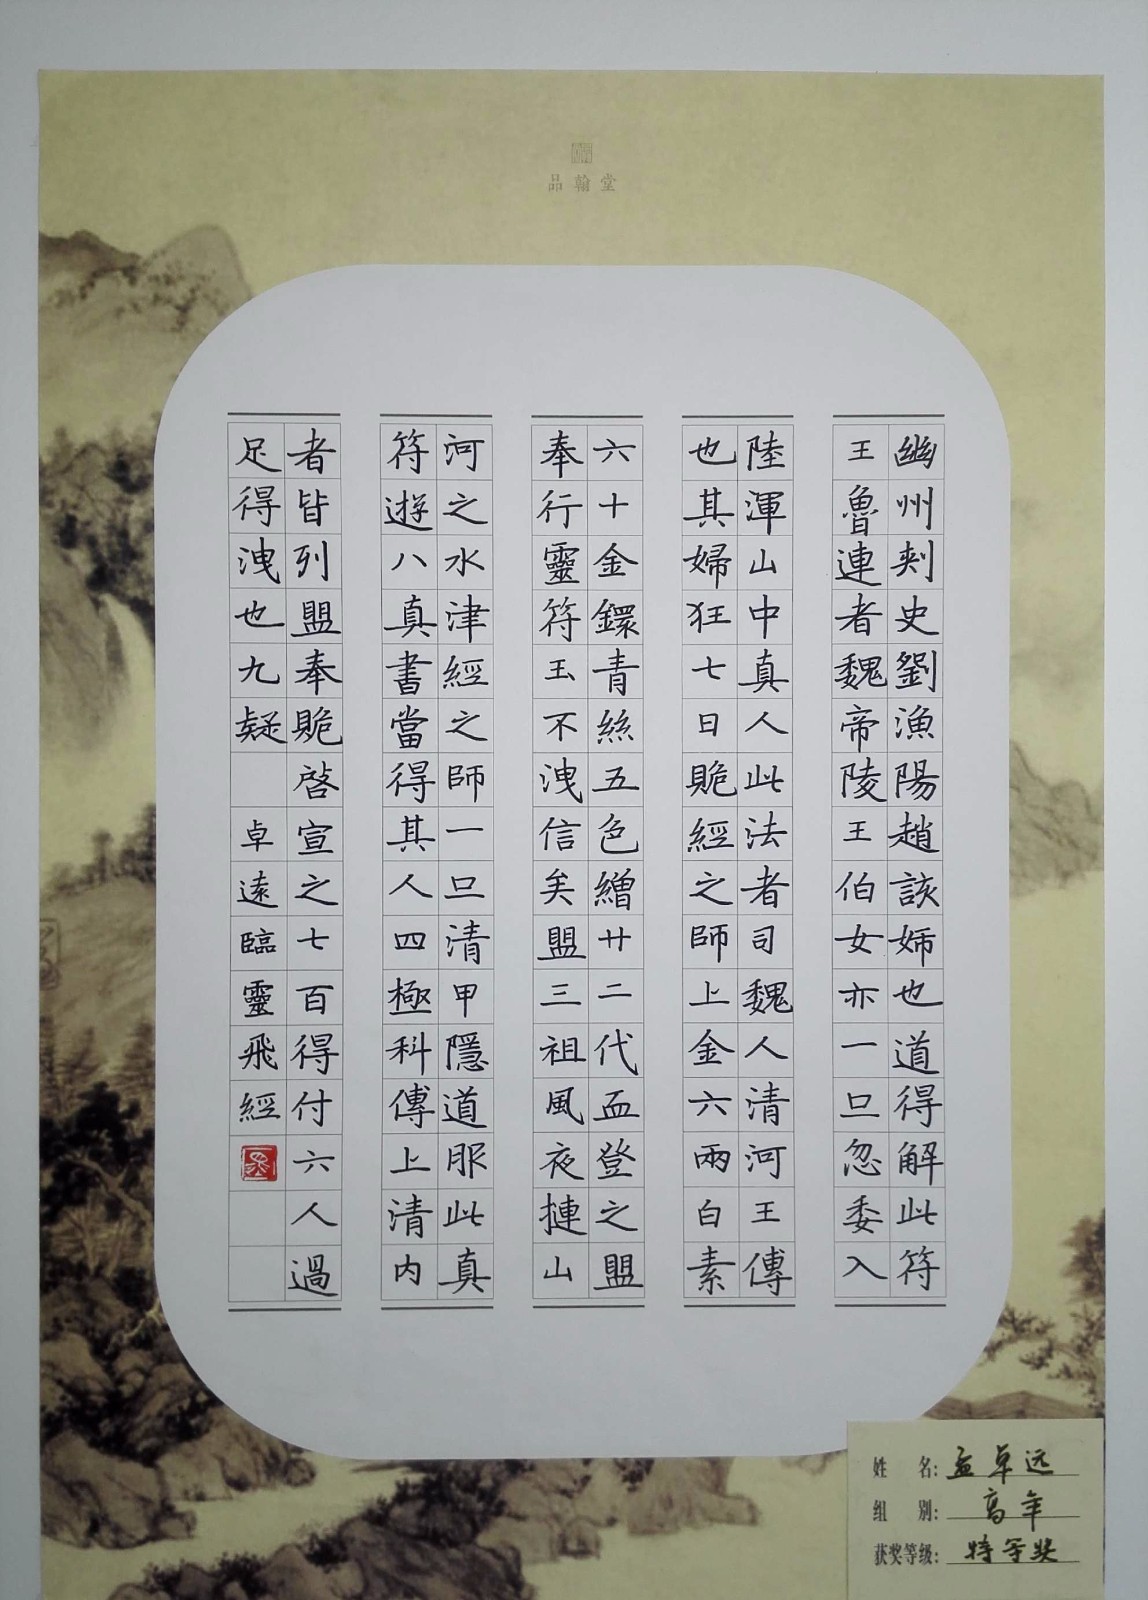 品翰堂
幽州刾史劉漁陽趙該姉也道得解此符
王魯連者魏帝陵王伯女亦一旦忽委入
陸渾山中真人此法者司魏人清河王傳
也其婦狂七日經之師上金六兩白素
六十金鐶青絲五色繒廿二代血登之盟
奉行靈符玉不洩信矣盟三祖風夜摙山
河之水津經之師一旦清甲隱道服此真
符遊八真書當得其人四極科傳上清内
者皆列盟奉啓宣之七百得付六人過
足得洩也九疑 卓遠臨靈飛經
姓名: 孟卓远
组别: 高年
获奖等级: 特等奖